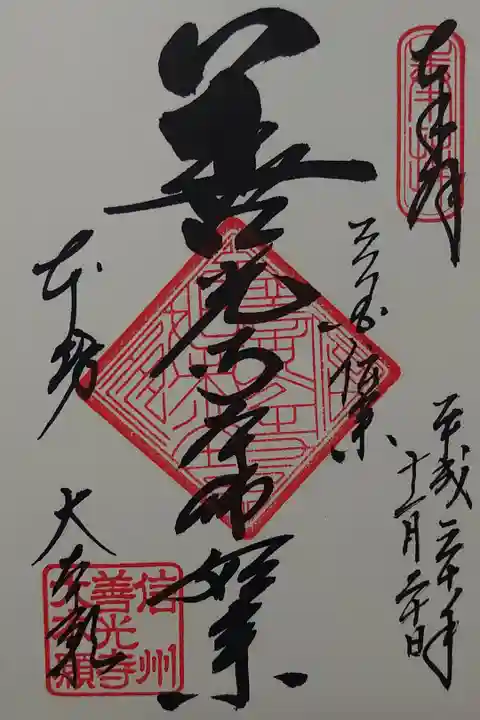 奉拝
三国伝来
善光寺本師如来
本坊
大本願
平成
十一月二十日
信州
善光寺
大本願